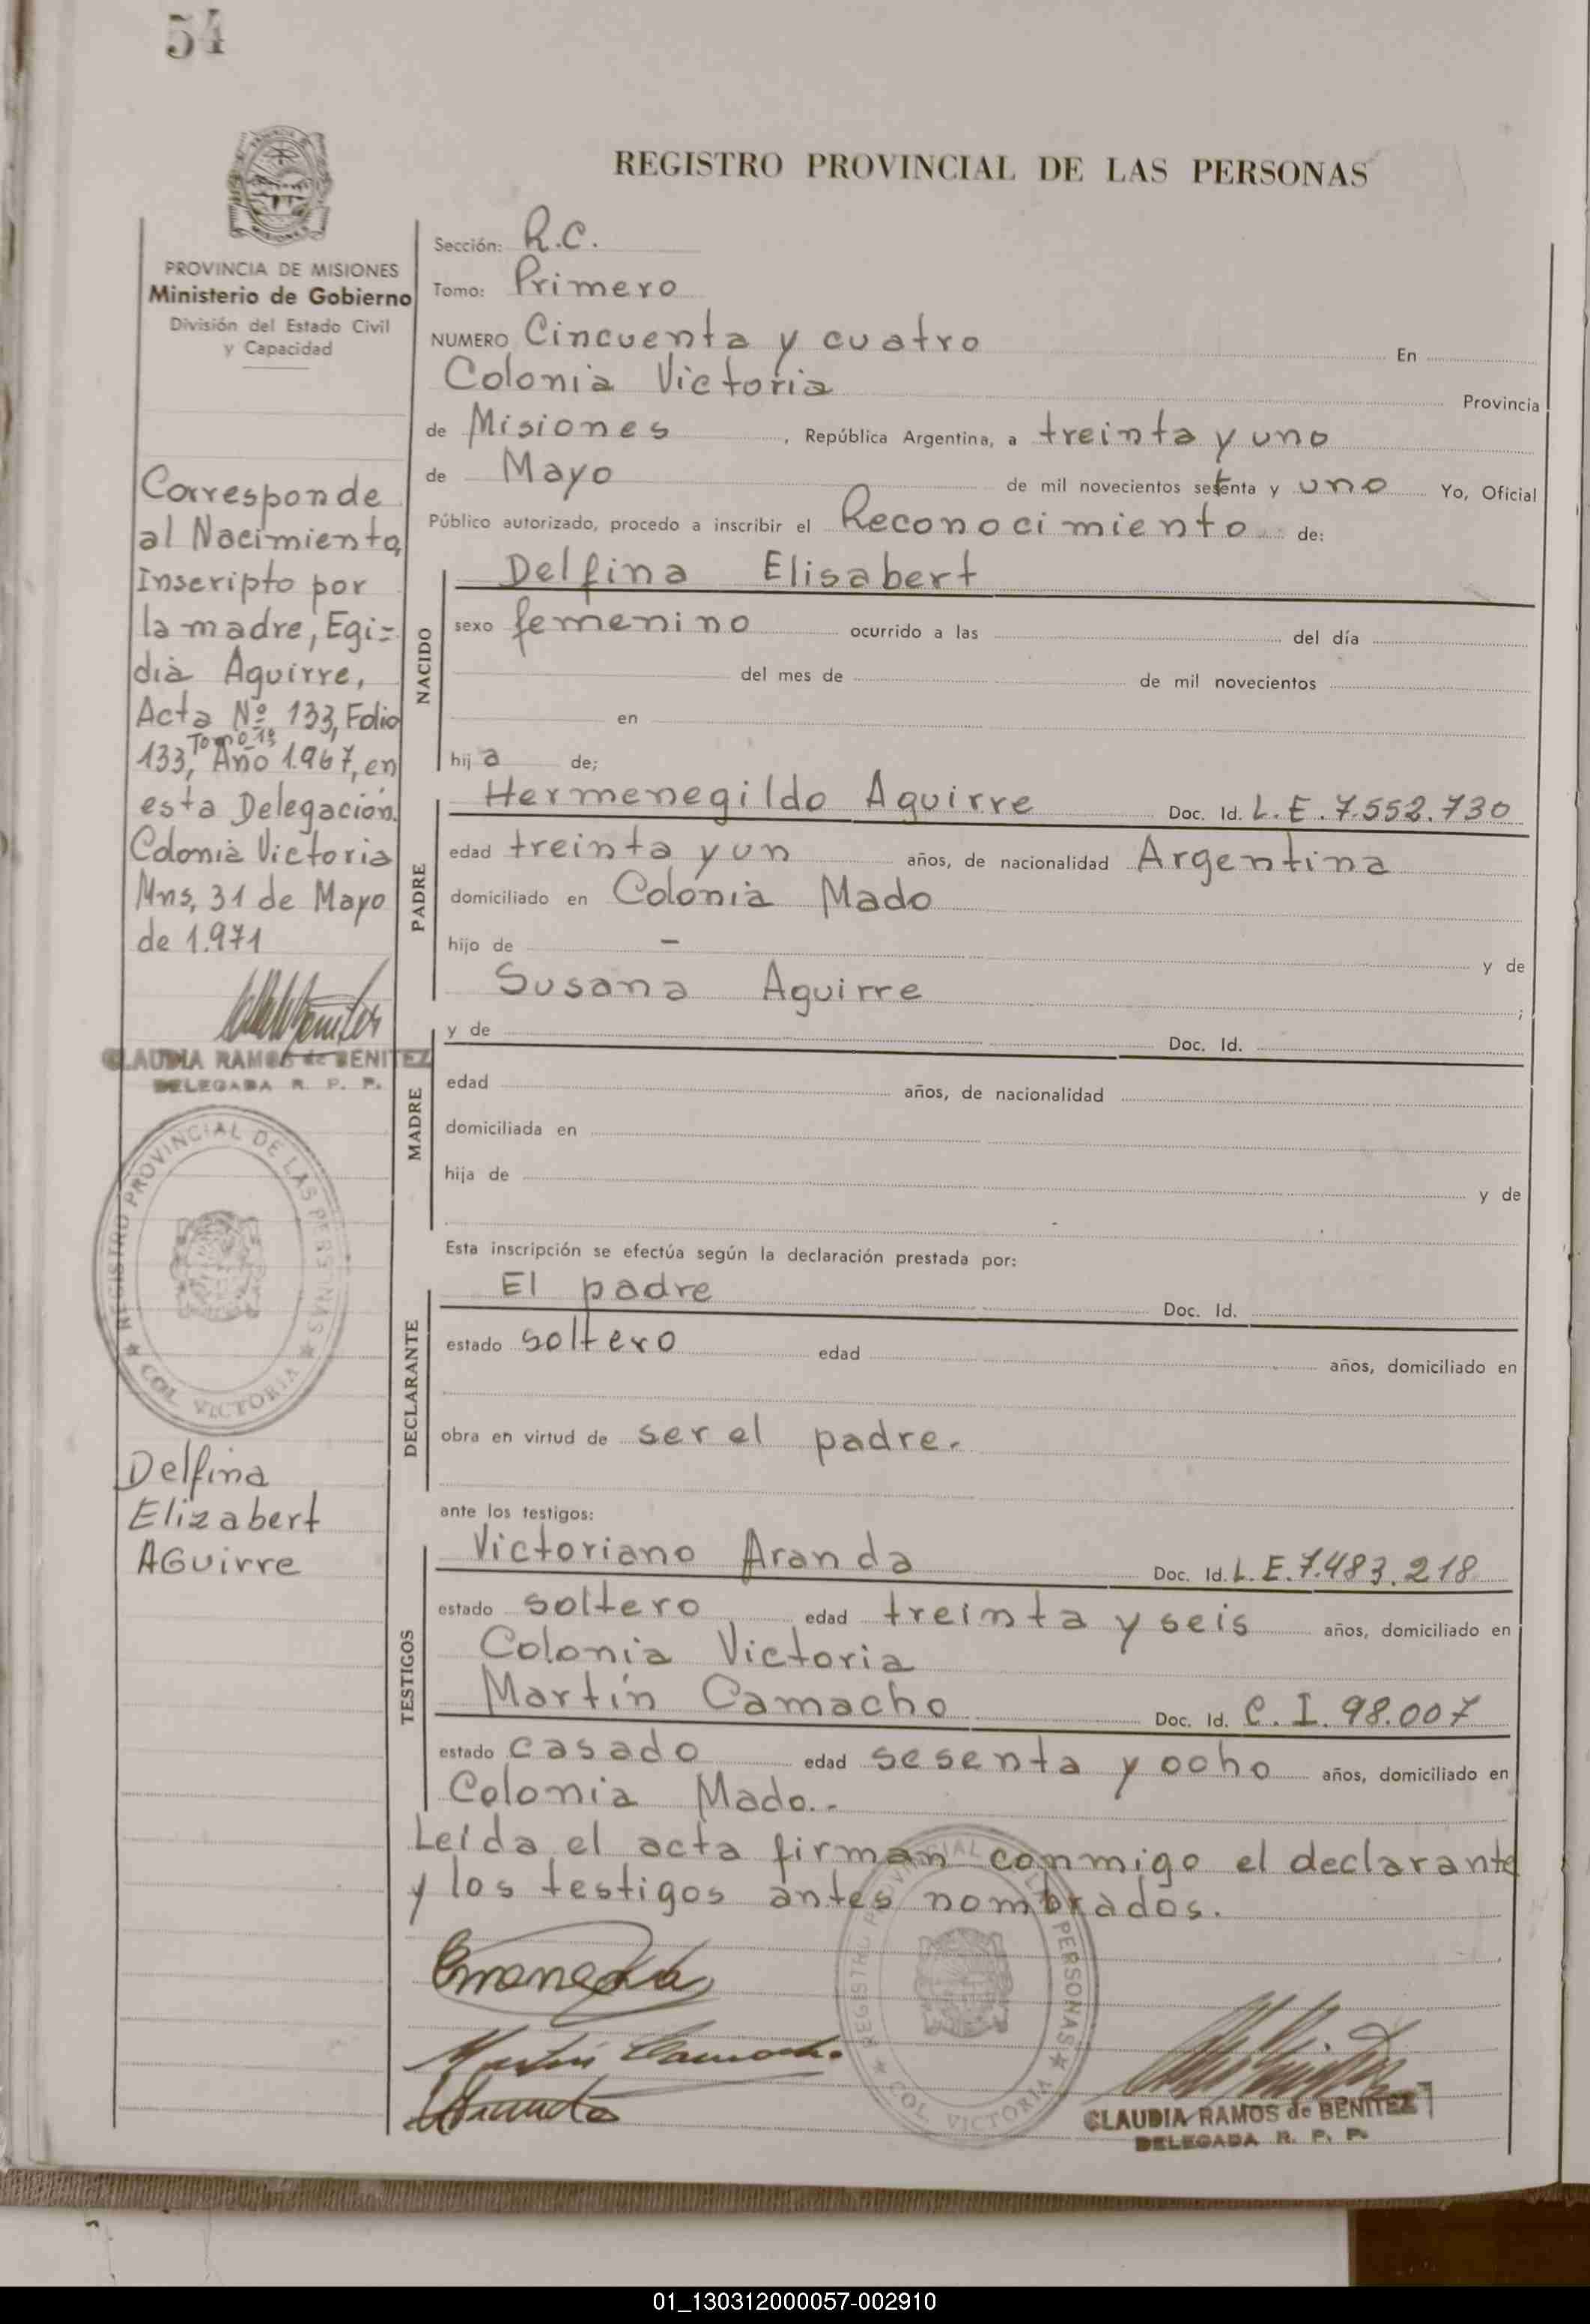 54
REGISTRO PROVINCIAL DE LAS PERSONAS
PROVINCIA DE MISIONES
Ministerio de Gobierno
División del Estado Civil
y Capacidad
Corresponde
al Nacimiento,
Inscripto por
la madre, Egi=
dia Aguirre,
Acta Nº 133, Folio
Tomo 1º
133, Año 1.967, en
esta Delegación.
Colonia Victoria
Mns, 31 de Mayo
de 1.971
CLAUDIA RAMOS de BENITEZ
DELEGADA R. P. P.
REGISTRO PROVINCIAL DE LAS PERSONAS
COL. VICTORIA
Delfina
Elizabert
AGuirre
Sección: R.C.
Tomo: Primero
NUMERO Cincuenta y cuatro En
Colonia Victoria Provincia
de Misiones, República Argentina, a treinta y uno
de Mayo de mil novecientos setenta y uno Yo, Oficial
Público autorizado, procedo a inscribir el Reconocimiento de:
NACIDO
Delfina Elisabert
sexo femenino ocurrido a las del día
del mes de de mil novecientos
en
hija de;
PADRE
Hermenegildo Aguirre Doc. Id. L.E. 7.552.730
edad treinta y un años, de nacionalidad Argentina
domiciliado en Colonia Mado
hijo de - y de
Susana Aguirre ;
MADRE
y de Doc. Id.
edad años, de nacionalidad
domiciliada en
hija de y de
Esta inscripción se efectúa según la declaración prestada por:
DECLARANTE
El padre Doc. Id.
estado soltero edad años, domiciliado en
obra en virtud de ser el padre.
ante los testigos:
TESTIGOS
Victoriano Aranda Doc. Id. L.E. 7.483.218
estado soltero edad treinta y seis años, domiciliado en
Colonia Victoria
Martín Camacho Doc. Id. C.I. 98.007
estado casado edad sesenta y ocho años, domiciliado en
Colonia Mado.-
Leída el acta firman conmigo el declarante
y los testigos antes nombrados.
REGISTRO PROVINCIAL DE LAS PERSONAS
COL. VICTORIA
Martin Camacho
CLAUDIA RAMOS de BENITEZ
DELEGADA R. P. P.
01_130312000057-002910